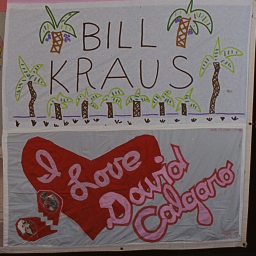 BILL
KRAUS
I Love
David
Calgaro